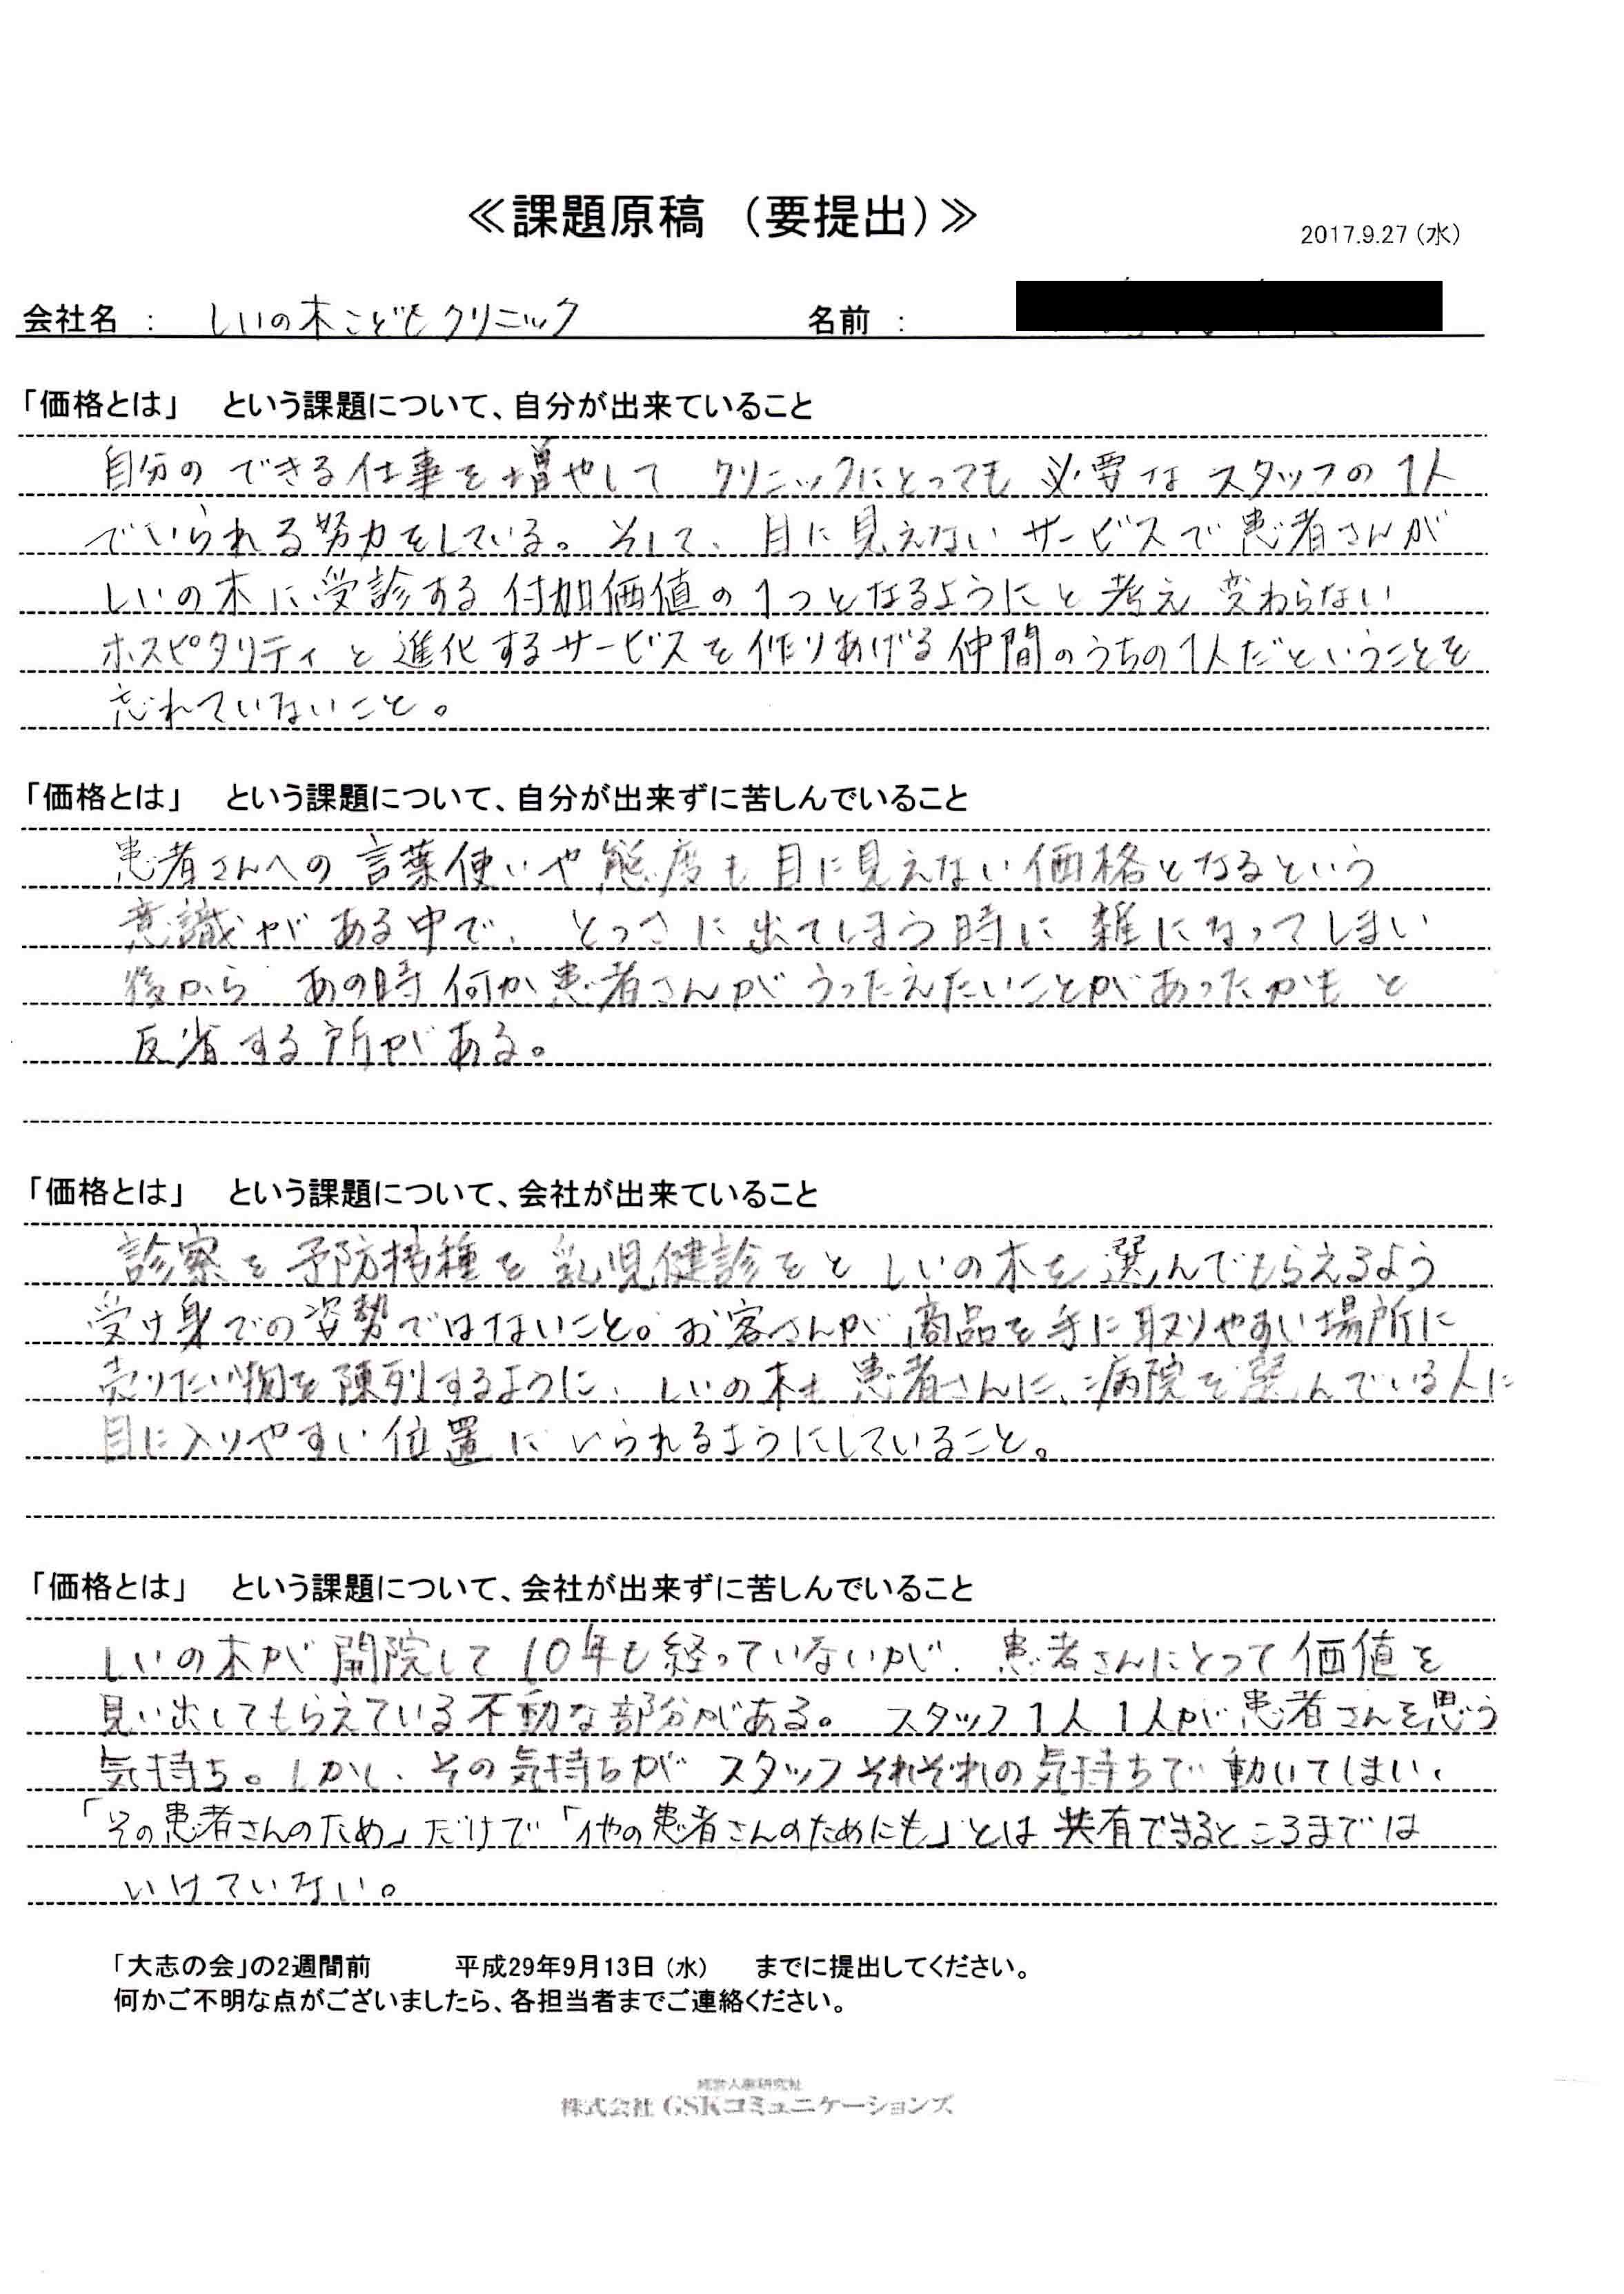 ≪課題原稿 （要提出）≫
2017.9.27（水）
会社名 ： しいの木こどもクリニック 名前 ：
「価格とは」 という課題について、自分が出来ていること
自分のできる仕事を増やして クリニックにとっても 必要な スタッフの1人
でいられる努力をしている。そして、目に見えないサービスで患者さんが
しいの木に受診する付加価値の1つとなるようにと考え 変わらない
ホスピタリティと進化するサービスを作りあげる仲間のうちの1人だということを
忘れていないこと。
「価格とは」 という課題について、自分が出来ずに苦しんでいること
患者さんへの言葉使いや態度も目に見えない価格となるという
意識がある中で、とっさに出てしまう時に雑になってしまい
後から あの時何か患者さんがうったえたいことがあったかも と
反省する所がある。
「価格とは」 という課題について、会社が出来ていること
診察を予防接種を乳児健診をと しいの木を選んでもらえるよう
受け身での姿勢ではないこと。お客さんが商品を手に取りやすい場所に
売りたい物を陳列するように、しいの木も患者さんに、病院を選んでいる人に
目に入りやすい位置に いられるようにしていること。
「価格とは」 という課題について、会社が出来ずに苦しんでいること
しいの木が開院して10年も経っていないが、患者さんにとって価値を
見い出してもらえている不動な部分がある。 スタッフ1人1人が患者さんを思う
気持ち。しかし、その気持ちが スタッフそれぞれの気持ちで動いてしまい、
「その患者さんのため」だけで「他の患者さんのためにも」とは共有できるところまでは
いけていない。
「大志の会」の2週間前 平成29年9月13日（水） までに提出してください。
何かご不明な点がございましたら、各担当者までご連絡ください。
経営人事研究社
株式会社 GSKコミュニケーションズ